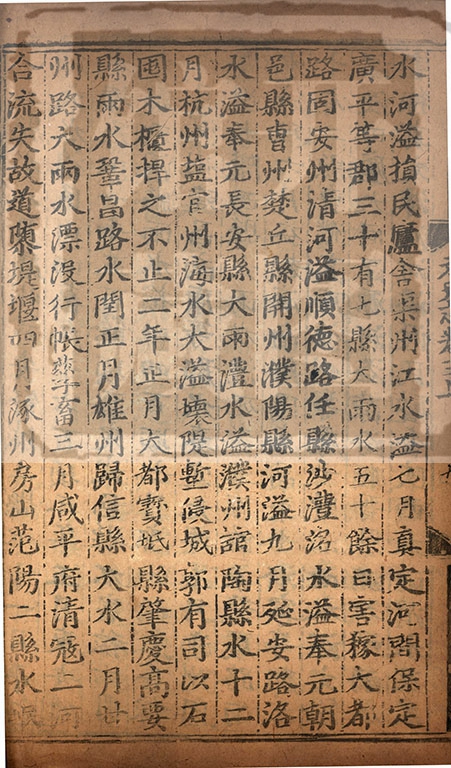 水河溢損民廬舍渠州江水溢七月真定河間保定
廣平等郡三十有七縣大雨水五十餘日害稼大都
路固安州清河溢順德路任縣沙灃洺水溢奉元朝
邑縣曹州楚丘縣開州濮陽縣河溢九月延安路洛
水溢奉元長安縣大雨澧水溢濮州館陶縣水十二
月杭州鹽官州海水大溢壞隄塹侵城郭有司以石
囤木櫃捍之不止二年正月大都寶坻縣肇慶高要
縣雨水鞏昌路水閏正月雄州歸信縣大水二月甘
州路大雨水漂沒行帳孳畜三月咸平府清寇二河
合流失故道隳堤堰四月涿州房山范陽二縣水